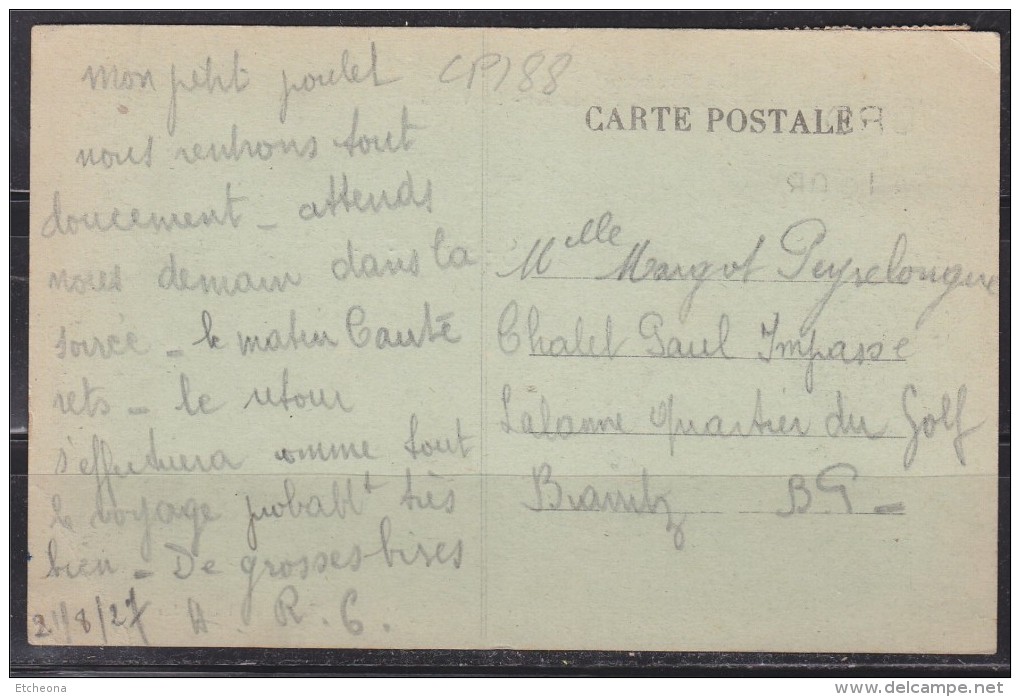 mon petit poulet CP188
nous rentrons tout
doucement – attends
nous demain dans la
soirée – le matin Cauté
rets – le retour
s'effectuera comme tout
le voyage probablt très
bien – De grosses bises
21/8/27 H. R. C.
CARTE POSTALE
Mlle Margot Peyrelongue
Chalet Paul Impasse
Lalanne Quartier du Golf
Biarritz
Etcheona
delcampe.net